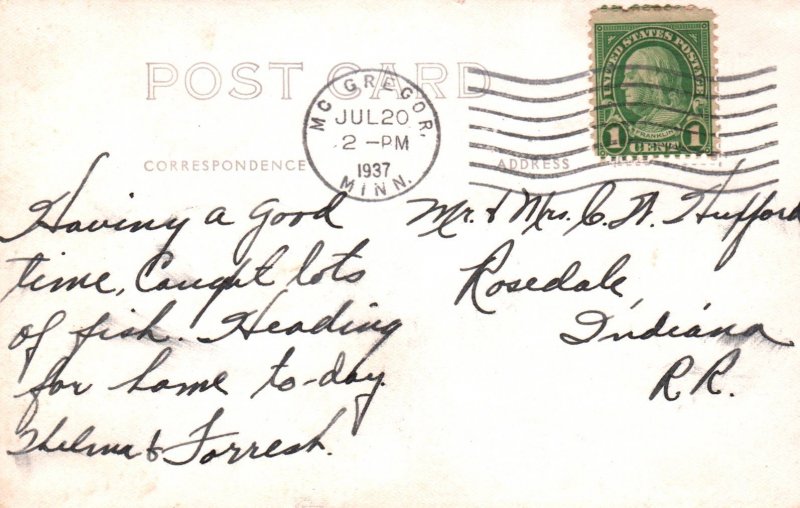 POST CARD
MC GREGOR,
JUL 20
2 - PM
1937
MINN.
UNITED STATES POSTAGE
FRANKLIN
1 CENT 1
CORRESPONDENCE
ADDRESS
Having a good
time, Caught lots
of fish. Heading
for home to-day.
Thelma & Forrest.
Mr. & Mrs. C. W. Hufford
Rosedale,
Indiana
R.R.